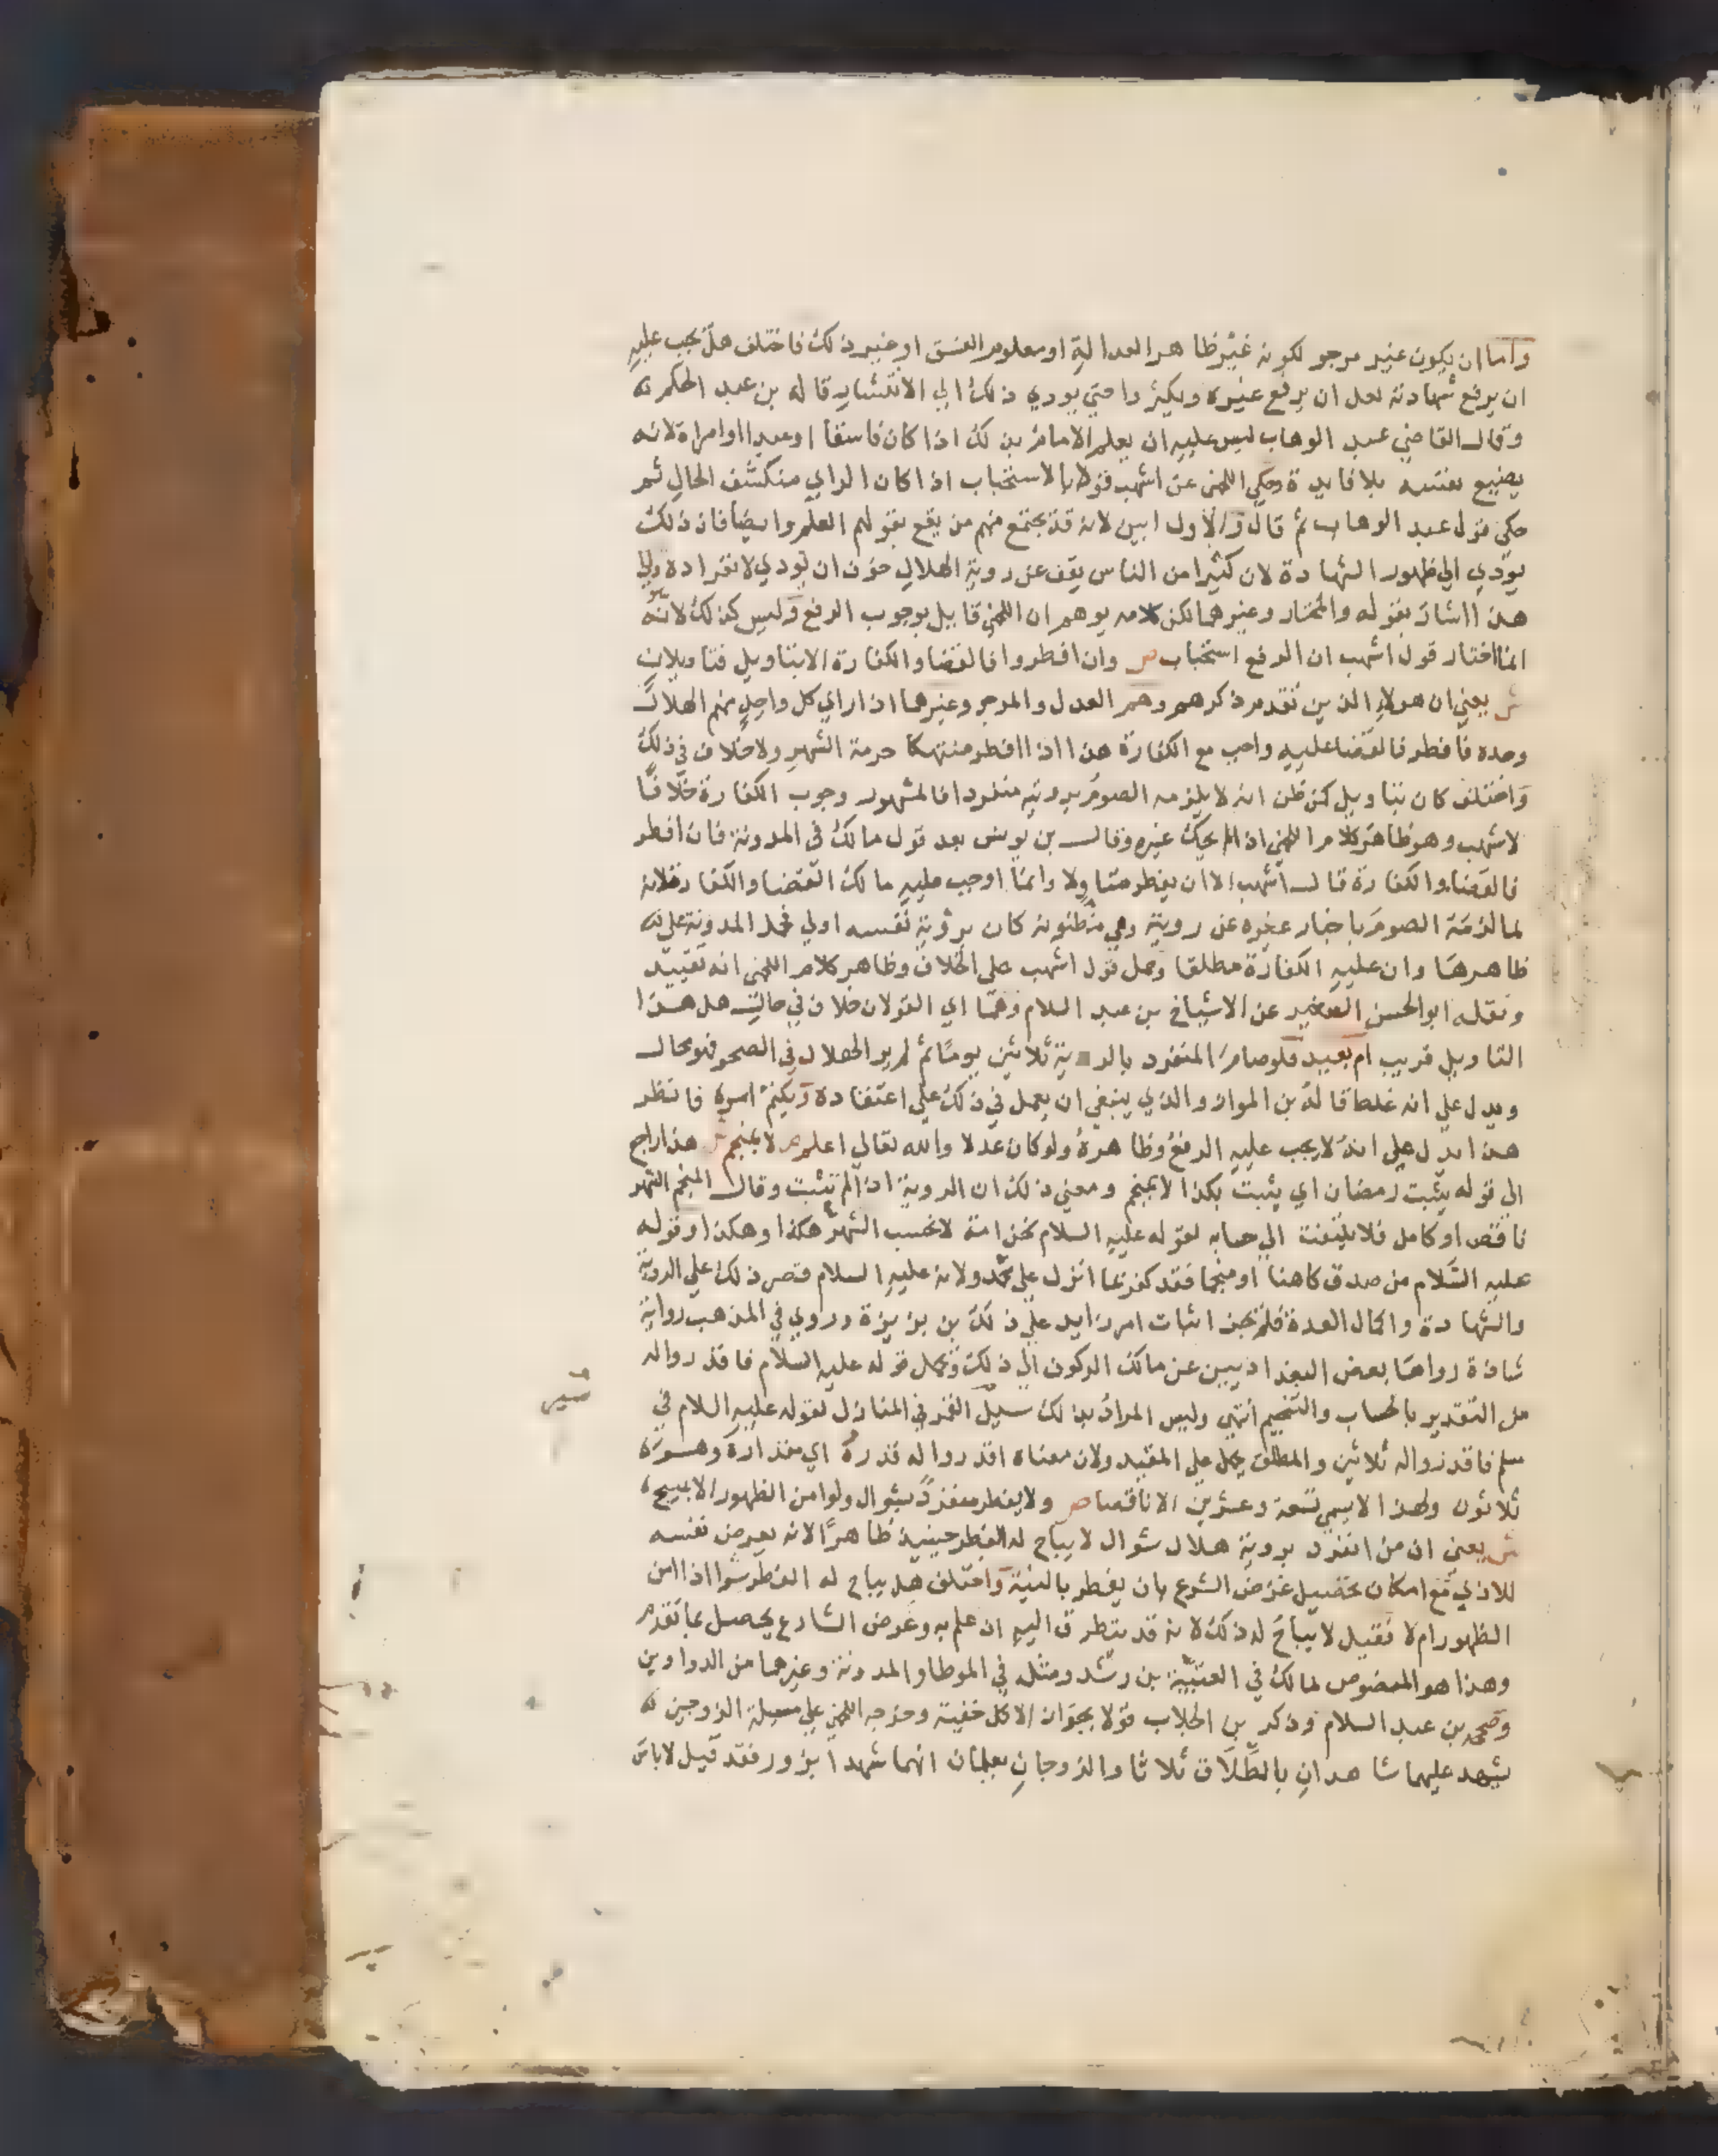 واما ان يكون غير مرجو لكونه غير ظاهر العدالة او معلوم الفسق او غير ذلك فاختلف هل يجب عليه
ان يرفع شهادته لعل ان يرفع غيره ويكثروا حتي يودي ذلك الي الانتشار قاله بن عبد الحكم
وقال القاضي عبد الوهاب ليس عليه ان يعلم الامام بذلك اذا كان فاسقا او عبدا او امراة لانه
يضيع نفسه بلا فايدة وحكي اللخمي عن اشهب قولا بالاستحباب اذا كان الراي منكشف الحال ثم
حكي قول عبد الوهاب ثم قال والاول ابين لانه قد يجتمع منهم من يقع بقولهم العلم وايضا فان ذلك
يودي الي ظهور الشهادة لان كثيرا من الناس يقف عن روية الهلال خوف ان يودي لانفراده والي
هذا اشار بقوله والمختار وغيرهما لكن كلامه يوهم ان اللخمي قايل بوجوب الرفع وليس كذلك لانه
انما اختار قول اشهب ان الرفع استحباب ص وان افطروا فالقضا والكفارة الا بتاويل فتاويلان
ش يعني ان هولاء الذين تقدم ذكرهم وهم العدل والمرجو وغيرهما اذا راي كل واحد منهم الهلال
وحده فافطر فالقضا عليه واجب مع الكفارة هذا اذا افطر منتهكا حرمة الشهر ولا خلاف في ذلك
واختلف كان بتاويل كمن ظن انه لا يلزمه الصوم برويته منفردا فالمشهور وجوب الكفارة خلافا
لاشهب وهو ظاهر كلام اللخمي اذ لم يحك غيره وقال بن يونس بعد قول مالك في المدونة فان افطر
فالقضا والكفارة قال اشهب الا ان يفطر متاولا وانما اوجب عليه مالك القضا والكفارة لانه
لما لزمه الصوم باخبار غيره عن روية وهي مظنونة كان بروية نفسه اولي فحمل المدونة علي
ظاهرها وان عليه الكفارة مطلقا وحمل قول اشهب علي الخلاف وظاهر كلام اللخمي انه تقييد
ونقله ابو الحسن الصغير عن الاشياخ بن عبد السلام وهما اي القولان خلاف في حال هل هذا
التاويل قريب ام بعيد فلو صام المنفرد بالروية ثلاثين يوما ثم لم ير الهلال في الصحو فمحال
ويدل علي انه غلط قاله بن المواز والذي ينبغي ان يعمل في ذلك علي اعتقاده ويكتم امره فانظر
هذا يدل علي انه لا يجب عليه الرفع وظاهره ولو كان عدلا والله تعالي اعلم ص لا بمنجم ش هذا راجع
الي قوله يثبت رمضان اي يثبت بكذا لا بمنجم ومعني ذلك ان الروية اذا لم تثبت وقال المنجم الشهر
ناقص او كامل فلا يلتفت الي حسابه لقوله عليه السلام نحن امة لا نحسب الشهر هكذا وهكذا وقوله
عليه السلام من صدق كاهنا او منجما فقد كفر بما انزل علي محمد ولانه عليه السلام قصر ذلك علي الروية
والشهادة واكمال العدة فلم يجز اثبات امر زايد علي ذلك بن بزيزة وروي في المذهب رواية
شاذة رواها بعض البغداديين عن مالك الركون الي ذلك وحمل قوله عليه السلام فاقدروا له
من التقدير بالحساب والتنجيم انتهي وليس المراد بذلك سير القمر في المنازل لقوله عليه السلام في
سير
مسلم فاقدروا له ثلاثين والمطلق يحمل علي المقيد ولان معناه اقدروا له قدره اي مقداره وهو
ثلاثون ولهذا لا يسمي تسعة وعشرين الا ناقصا ص ولا يفطر منفرد بشوال ولو امن الظهور الا بمبيح
ش يعني ان من انفرد بروية هلال شوال لا يباح له الفطر حينيذ ظاهرا لانه يعرض نفسه
للاذي مع امكان تحصيل غرض الشرع بان يفطر بالنية واختلف هل يباح له الفطر سرا اذا امن
الظهور ام لا فقيل لا يباح له ذلك لانه قد يتطرق اليه ان علم به وغرض الشارع يحصل بما تقدم
وهذا هو المنصوص لمالك في العتبية بن رشد ومثله في الموطا والمدونة وغيرهما من الدواوين
وصححه بن عبد السلام وذكر بن الجلاب قولا بجواز الاكل خفية وخرجه اللخمي علي مسيلة الزوجين
يشهد عليهما شاهدان بالطلاق ثلاثا والزوجان يعلمان انهما شهدا بزور فقد قيل لا باس